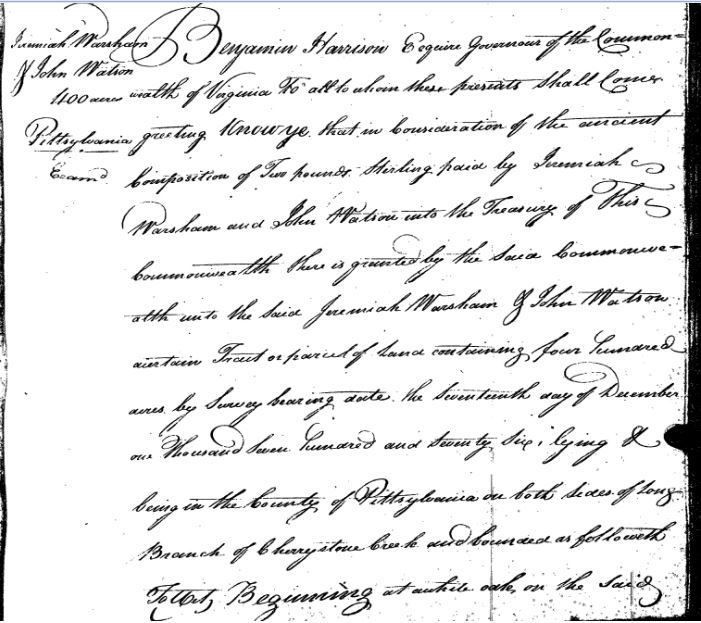 Jeremiah Warsham
& John Watson
400 acres
Pittsylvania
Exam'd
Benjamin Harrison Esquire Governour of the Common=
wealth of Virginia To all to whom these presents Shall Come
greeting Know ye that in Consideration of the ancient
Composition of Two pounds Sterling paid by Jeremiah
Warsham and John Watson into the Treasury of This
Commonwealth there is granted by the said Commonwe=
alth unto the said Jeremiah Warsham & John Watson
acertain Tract or parcel of Land containing four hundred
acres by Survey bearing date the Seventeenth day of December
one Thousand Seven hundred and Seventy Six; lying &
being in the County of Pittsylvania on both sides of Long
Branch of Cherrystone Creek and bounded as followeth
To Wit, Beginning at awhite oak, on the said